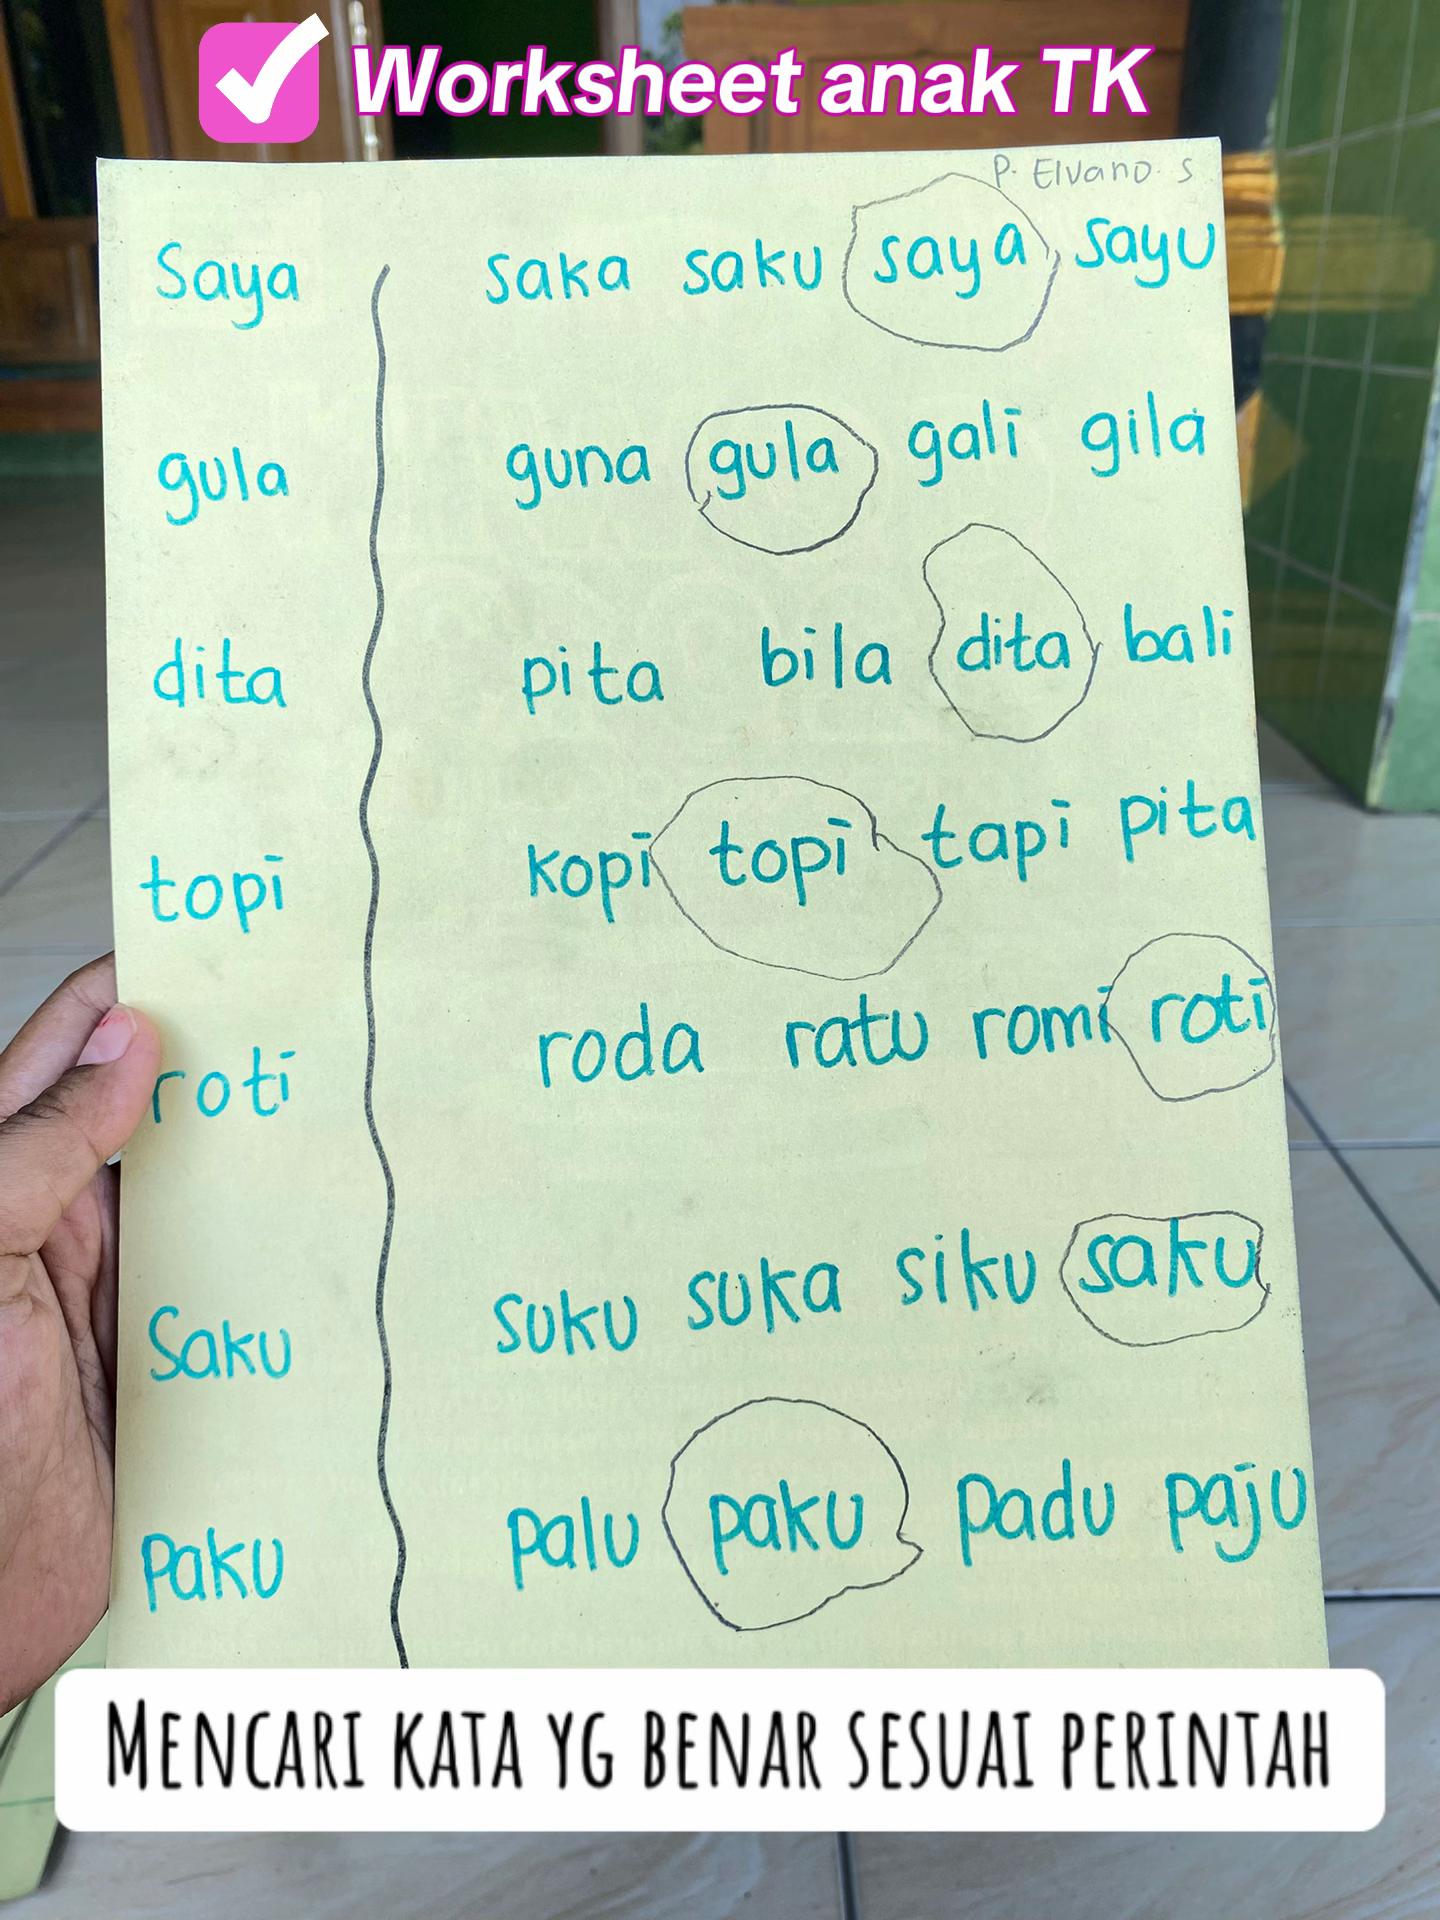 Worksheet anak TK
P. Elvano. S
Saya saka saku saya sayu
gula guna gula gali gila
dita pita bila dita bali
topi kopi topi tapi pita
roti roda ratu romi roti
Saku suku suka siku saku
Paku palu paku padu paju
MENCARI KATA YG BENAR SESUAI PERINTAH